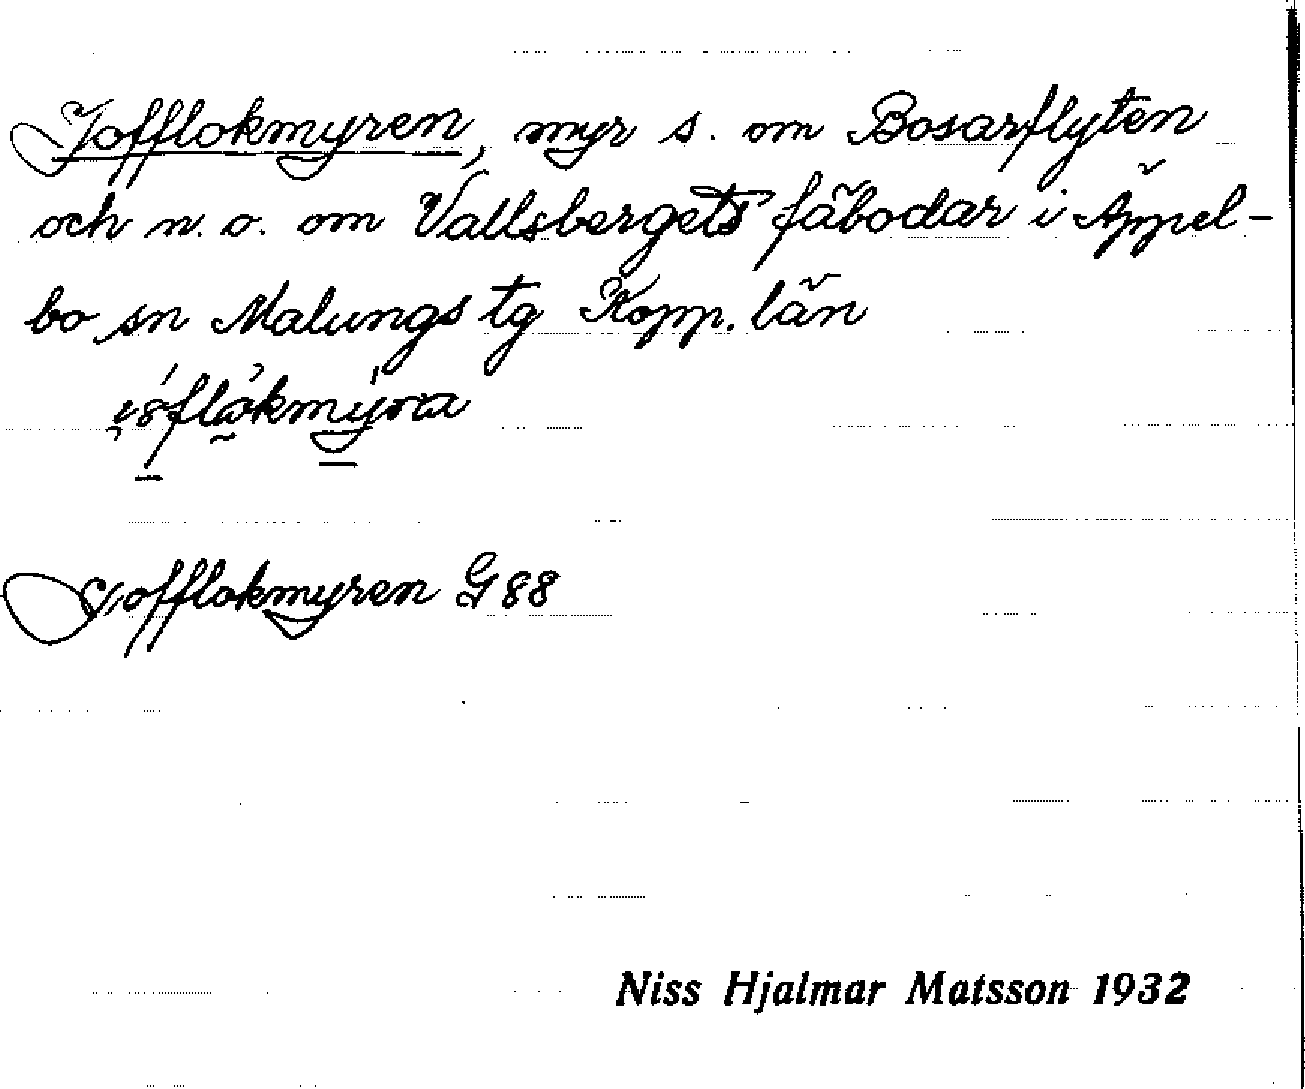 Jofflokmyren, myr s. om Bosarflyten
och n. o. om Vallsbergets fäbodar i Äppel-
bo sn Malungs tg Kopp. län
Jofflokmyren G88
Niss Hjalmar Matsson 1932